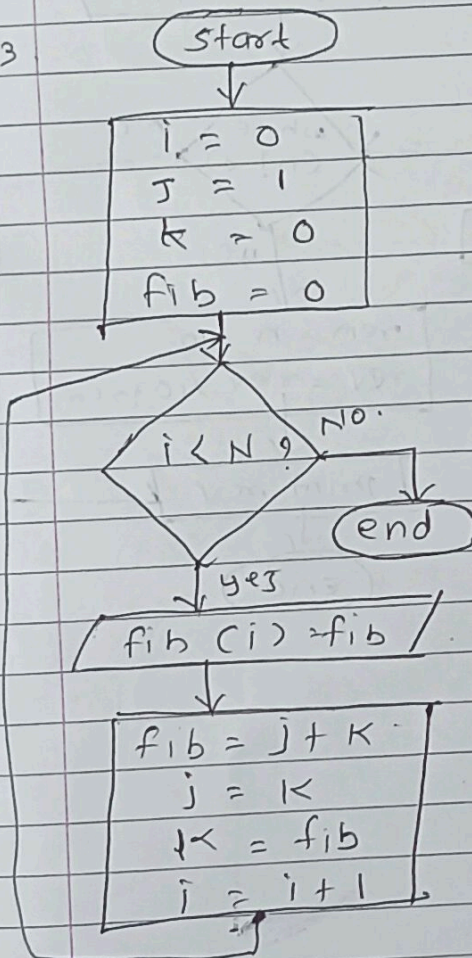 3
start
i = 0
J = 1
k = 0
fib = 0
i < N ?
NO.
end
yes
fib (i) = fib
fib = j + K
j = K
K = fib
i = i + 1